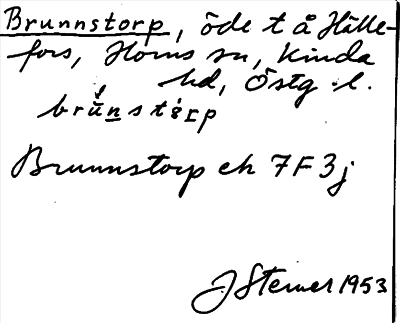 Brunnstorp, öde t å Hälle-
fors, Horns sn, Kinda
hd, Östg. l.
brunstorp
Brunnstorp ek 7F3j
J Sterner 1953